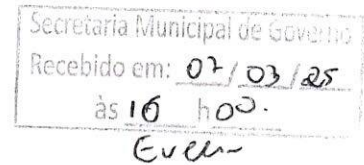 Secretaria Municipal de Governo
Recebido em: 07/03/25
às 16 h00.